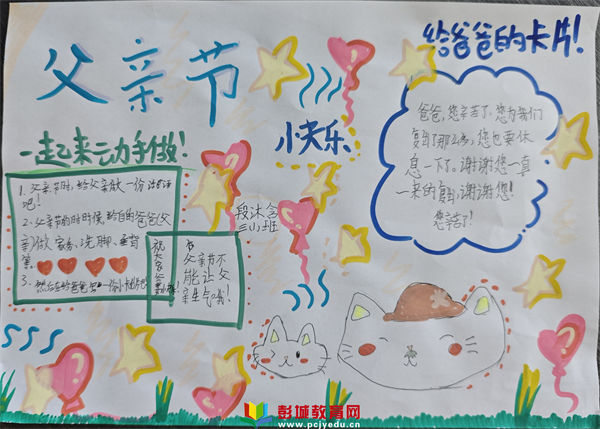 父亲节
给爸爸的卡片!
小快乐
一起来动手做!
爸爸,您辛苦了,您为我们
复出了那么多,您也要休
息一下了。谢谢您一直
一来的复出,谢谢您!
您辛苦了!
1、父亲节时,给父亲做一份
吧!
2、父亲节的时候,给自的爸爸(父
亲)做家务、洗脚、垂背
等。
3、然后在给爸爸
段沐含
三小班
祝大家爸爸
父亲节不
能让父
亲生气哦!
彭城教育网
www.pcjyedu.cn